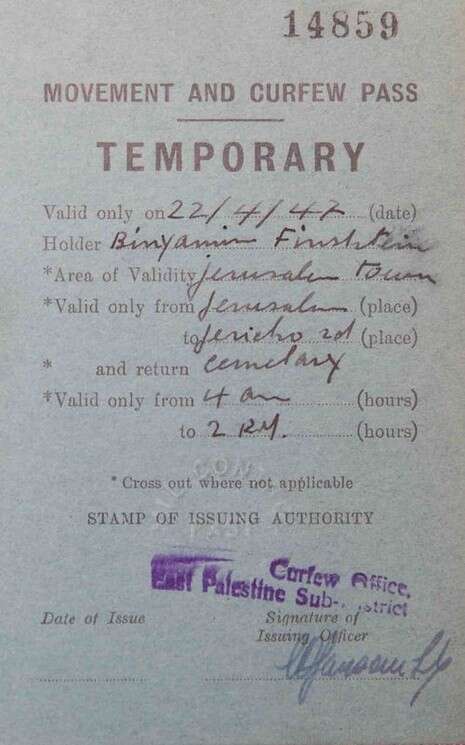 14859
MOVEMENT AND CURFEW PASS
TEMPORARY
Valid only on 22/4/47 (date)
Holder Binyamin Finshtein
*Area of Validity Jerusalem Town
*Valid only from Jerusalem (place)
to Jericho rd (place)
* and return cemetary
*Valid only from 4 am (hours)
to 2 P.M. (hours)
* Cross out where not applicable
STAMP OF ISSUING AUTHORITY
Curfew Office,
East Palestine Sub-District
Date of Issue
Signature of
Issuing Officer